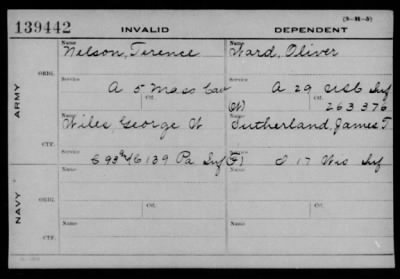 (3-M-5)
139442 INVALID DEPENDENT
Name Name
Nelson, Terence Ward, Oliver
ORIG.
Service Service
A 5 Mass Cav A 29 USC Inf
Ctf. Ctf.
(W) 263376
ARMY
Name
Wiles George W Sutherland, James T
CTF.
Service Service
93 139 Pa Inf (F) I 17 Wis Inf
Name Name
ORIG.
Service Ctf. Service Ctf.
NAVY
Name Name
CTF.
Service Ctf. Service Ctf.